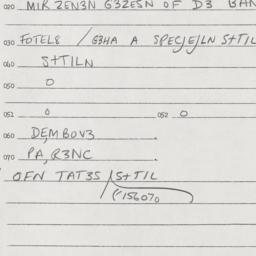 020 MIR ZEN3N G3ZESN OF D3 BAN
030 FOTEL8 / G3HA A SPECJEJLN S+TIL
040 S+TILN
050 0
051 0 052 0
060 DEMBOV3
070 PA, R3NC
OFN TAT3S / S+TIL
(15607)